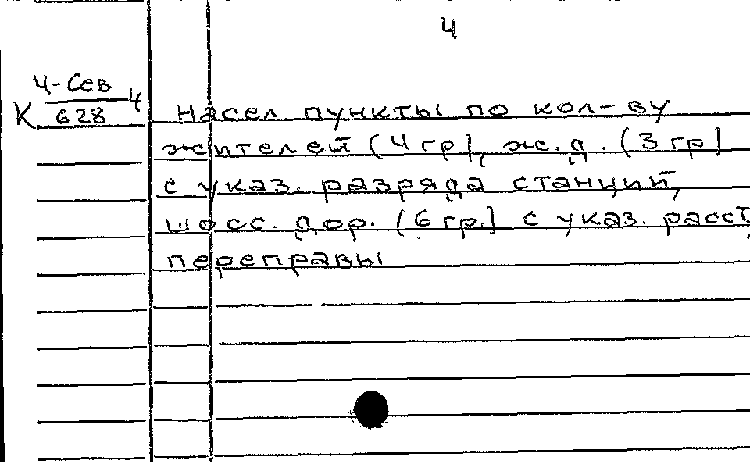 4
Ч-Сев
К 628 4
Насел пункты по кол-ву
жителей (4 гр), ж.д. (3 гр)
с указ. разряда станций,
шосс. дор. (6 гр.) с указ. расст,
переправы